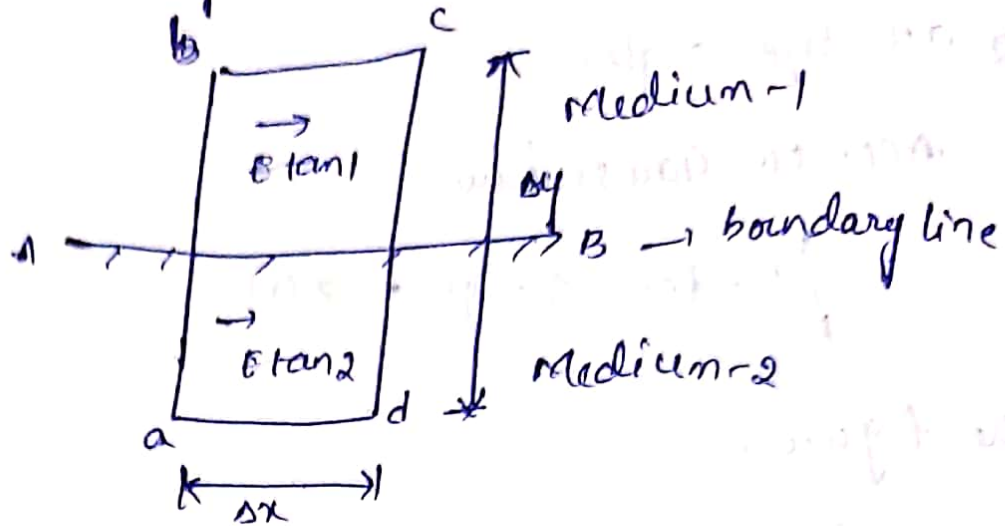 b' c
Medium-1
E tan1
Δy
A B → boundary line
E tan2
Medium-2
a d
Δx